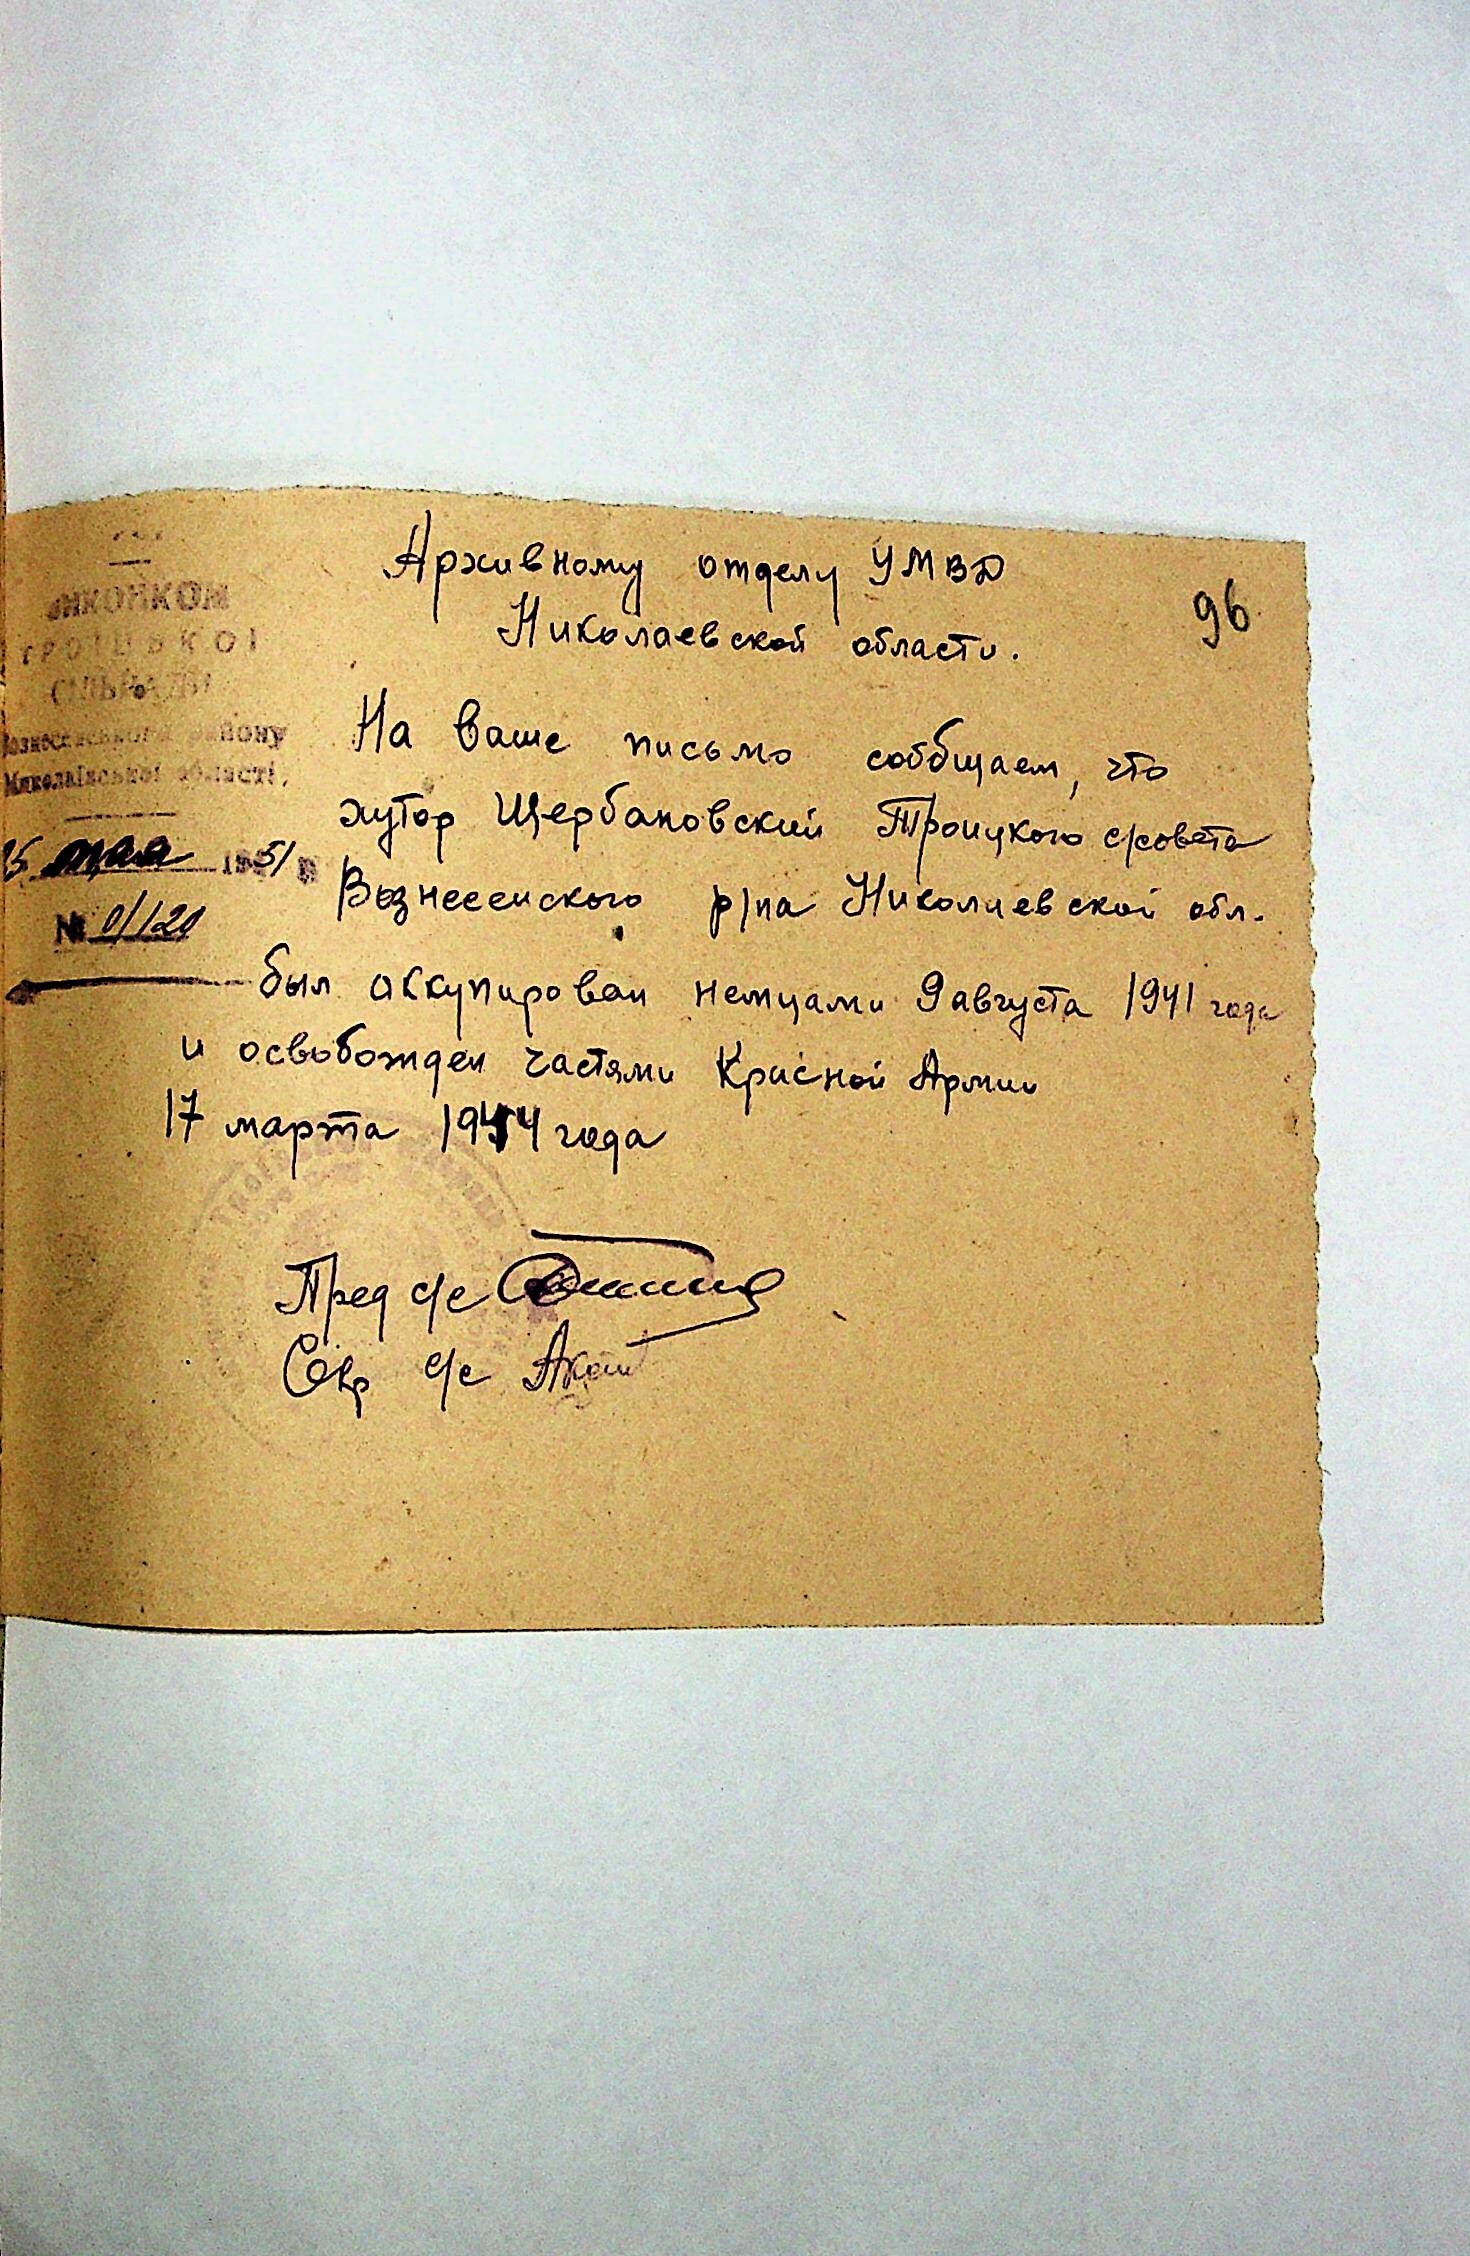 Архивному отделу УМВД
Николаевской области.
96
ВИКОНКОМ
ТРОЇЦЬКОЇ
СІЛЬРАДИ
Вознесенського району
Миколаївської області,
25 мая 1951 р
№ 01/20
На ваше письмо сообщаем, что
хутор Щербановский Троицкого с/совета
Вознесенского р/на Николаевской обл.
был аккупирован немцами 9 августа 1941 года
и освобожден частями Красной Армии
17 марта 1944 года
Пред с/с
Секр с/с